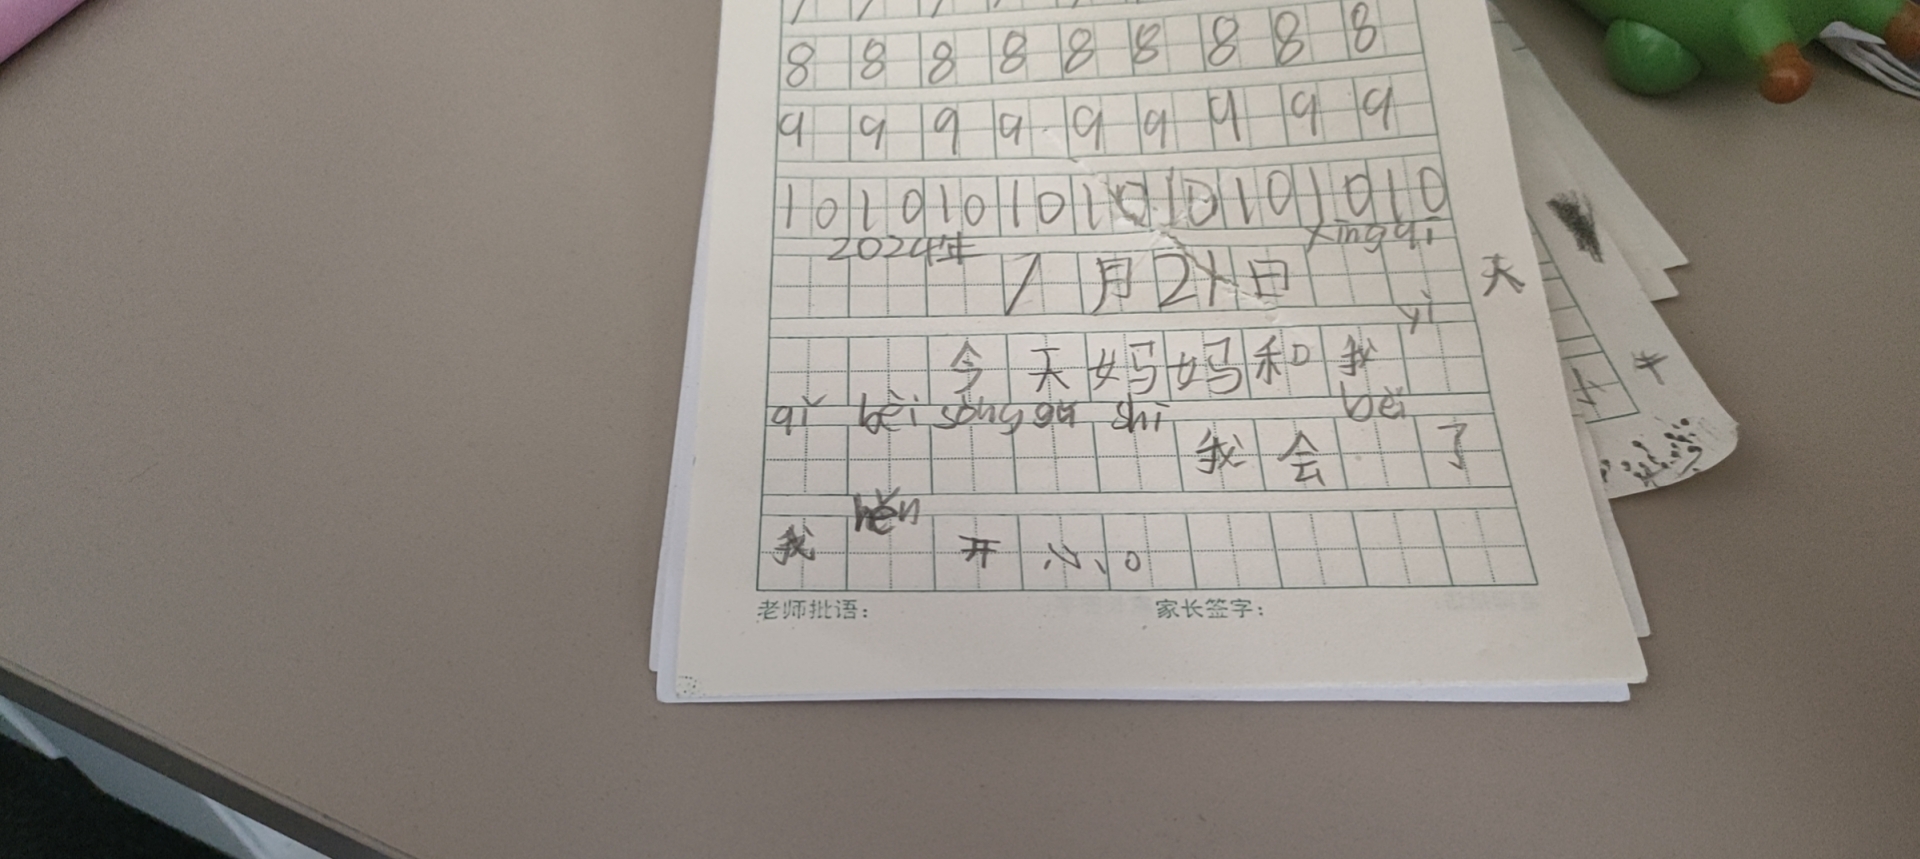 8 8 8 8 8 8 8 8 8
9 9 9 9 9 9 9 9 9
10 10 10 10 10 10 10 10 10
2024年 1月21日 xīng qī 天
今天妈妈和我 yì
qǐ bèi sòng gǔ shī 我会 bèi 了
我 hěn 开心。
老师批语： 家长签字：